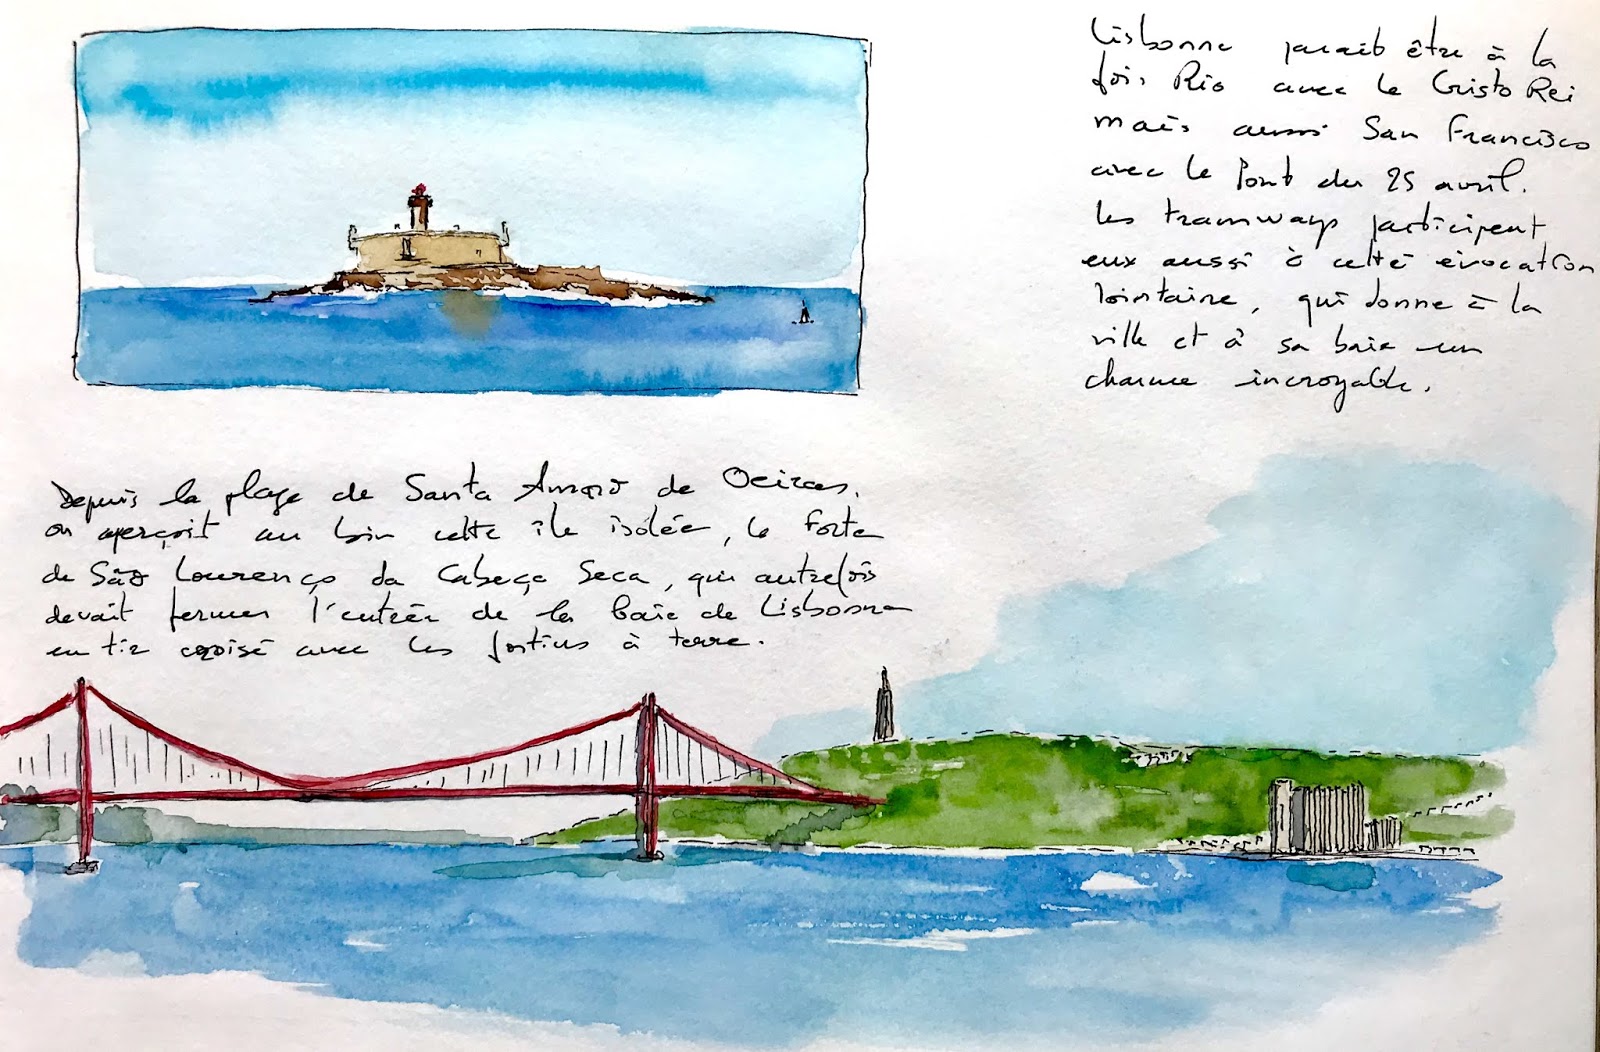 Lisbonne paraît être à la
fois Rio avec le Cristo Rei
mais aussi San Francisco
avec le Pont du 25 avril.
Les tramways participent
eux aussi à cette évocation
lointaine, qui donne à la
ville et à sa baie un
charme incroyable.
Depuis la plage de Santa Amaro de Oeiras,
on aperçoit au loin cette île isolée, le Forte
de São Lourenço da Cabeça Seca, qui autrefois
devait fermer l'entrée de la baie de Lisbonne
en tir croisé avec les fortins à terre.